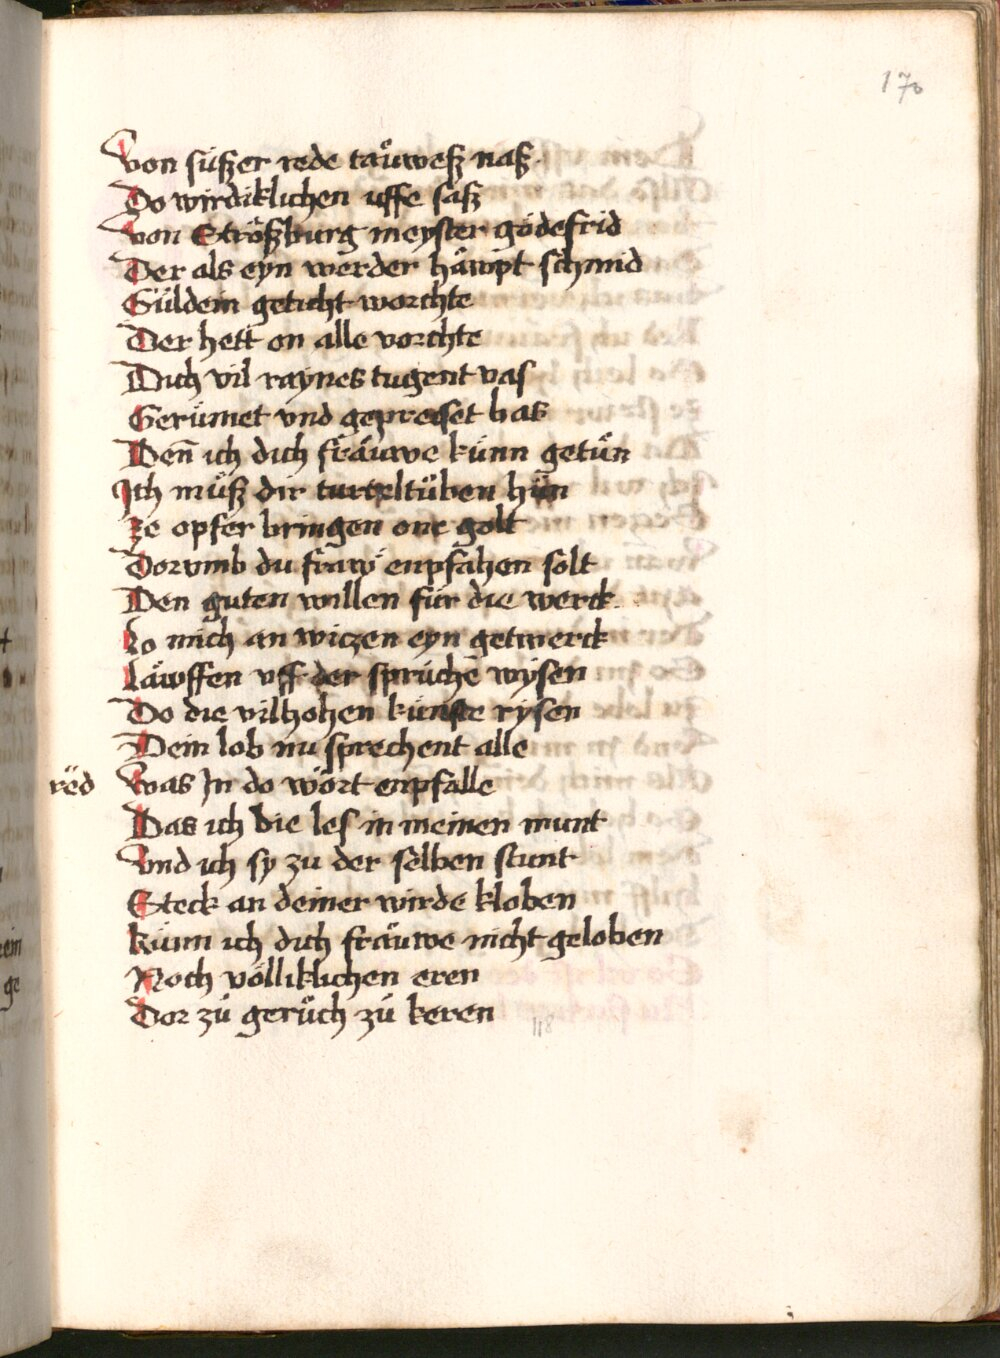 170
Von süßer rede taüweß naß
Do wirdiklichen uffe saß
Von Strößburg meyster gödefrid
Der als eyn werder häwpt schmid
Güldein geticht worchte
Der hett on alle vorchte
Dich vil raynes tugent vas
Gerümet vnd gepreiset bas
Den̄ ich dich fräuwe künn getün
Ich müß dir turteltüben hün
ze opfer bringen one golt
Dorvmb du fraw enpfahen solt
Den guten willen für die werck
Lo mich an wiczen eyn getwerck
Läwffen vff der sprüche wysen
Do die vilhohen künste rysen
Dein lob nu sprechent alle
red Was In do wört enpfalle
Das ich die les in meinen munt
Vnd ich sy zu der selben stunt
Steck an deiner wirde kloben
Künn ich dich fräuwe nicht geloben
Noch völliklichen eren
Dor zü gerüch zü keren
118